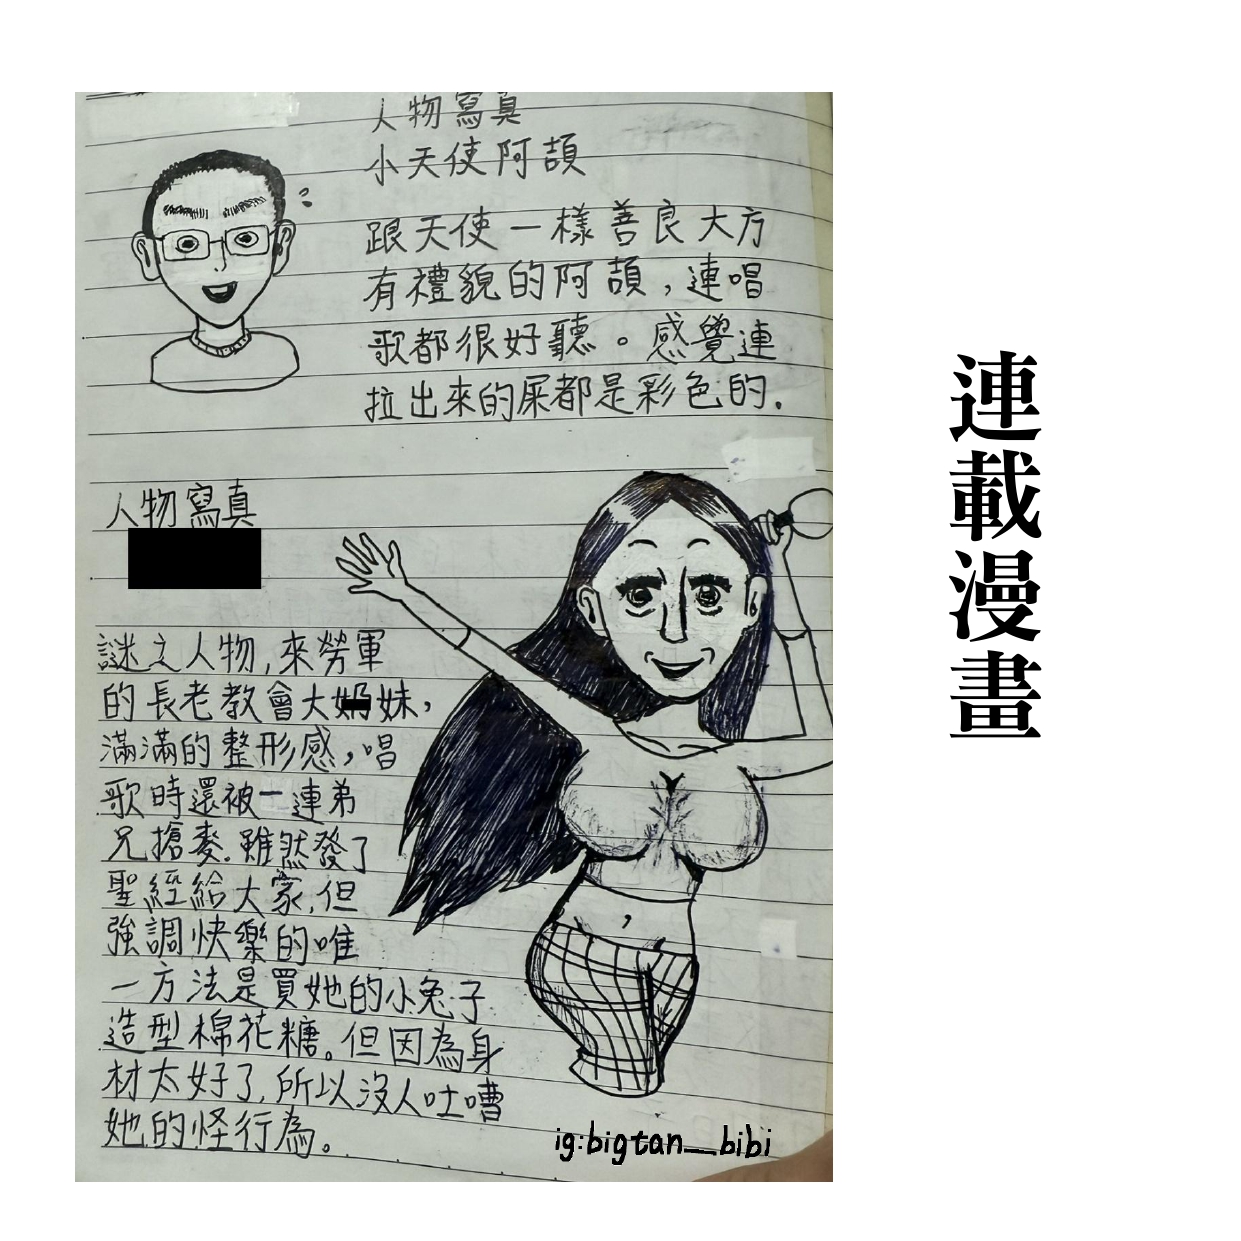 人物寫真
小天使阿頡
跟天使一樣善良大方
有禮貌的阿頡，連唱
歌都很好聽。感覺連
拉出來的屎都是彩色的.
人物寫真
謎之人物,來勞軍
的長老教會大奶妹,
滿滿的整形感,唱
歌時還被一連弟
兄搶麥.雖然發了
聖經給大家,但
強調快樂的唯
一方法是買她的小兔子
造型棉花糖。但因為身
材太好了,所以沒人吐嘈
她的怪行為。
ig:bigtan__bibi
連載漫畫